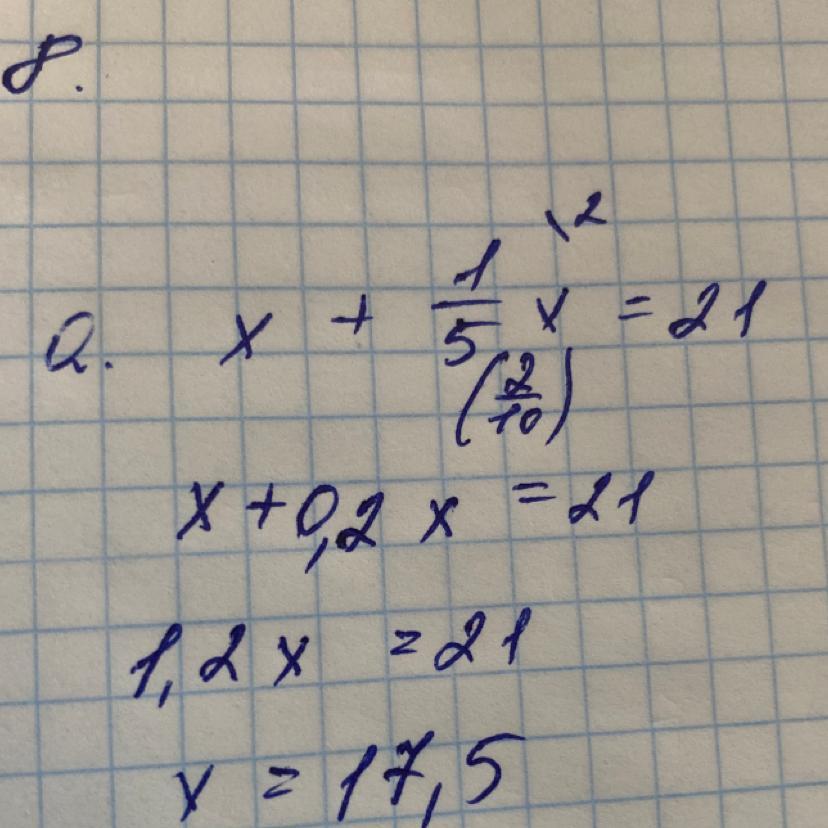 8.
\2
a. x + 1/5 x = 21
(2/10)
x + 0,2 x = 21
1,2 x = 21
x = 17,5